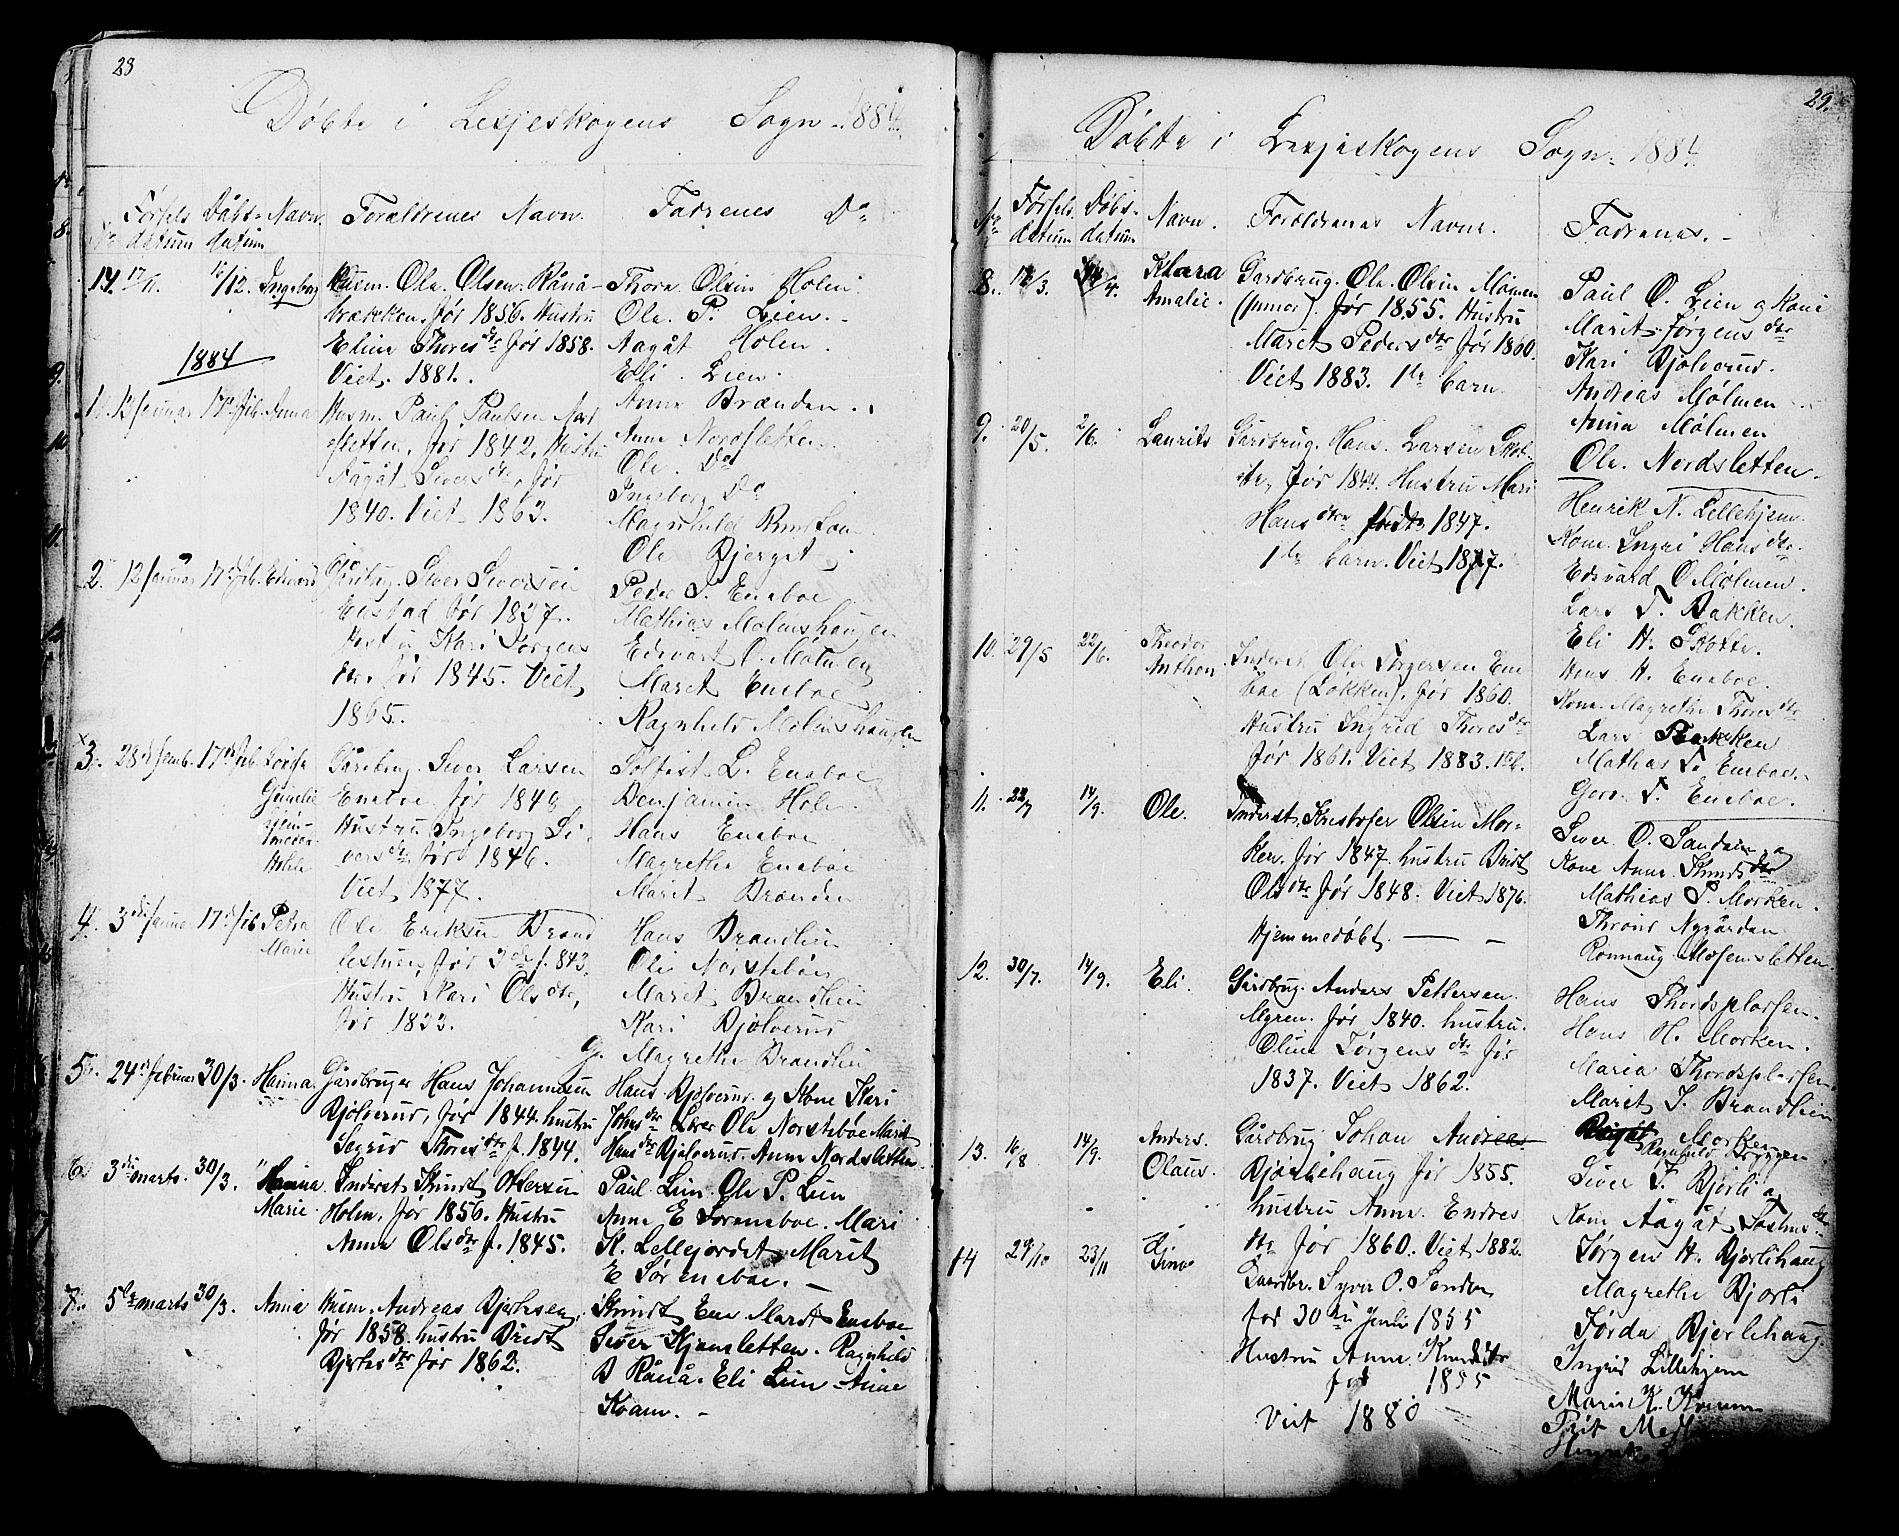 28
Döbte i Lesjeskogens Sogn 1884
No Förfels datum Dåbs datum Navn. Foreldrenes Navn. Fadrenes Do
14. 17/11. 16/12. Ingeborg
Husm. Ole Olsen Rånå-
brækken. för 1856. Hustru
Eline Thores dtr för 1858.
Viet. 1881.
Thore Olsen Holm.
Ole. P. Lien.
Aagåt Holm.
Eli. Lien.
Anne Brænden.
1884
1. 17de feb. Anna
Husm. Paul Paulsen Nord
sletten. för 1842. Hustru
Aagåt Sivers dtr. för
1840. Viet 1863.
Anne Nordsletten.
Ole. Do
Ingeborg Do
Magnhild
Ole Bjerget
2. 12 Januar 17de feb. Edvard
Gårdbrug. Siver Siversen
Enstad för 1837.
Hustru Kari Jörgens
dtr. för 1845. Viet
1865.
Peder S. Eneboe
Mathias Mölmshaugen
Edevart O. Mölmen
Maret Eneboe
Ragnhild Mölmshaugen
3. 28de 17de feb. Lovise
Gårdbrug. Siver Larsen
Eneboe. för 1849
Hustru Ingeborg Si-
vers dtr för 1846.
Viet 1877.
Tolfist L. Eneboe
Benjamin Holm.
Hans Eneboe
Magrethe Eneboe
Marit Brænden
4. 3de Januar 17de feb Petra
Marie
Ole Eriksen Brand
listuen, för 3de f. 843.
Hustru Kari Ols dtr,
för 1833.
Hans Brandlien
Ole Norsteböe
Maret Brandlien
Kari Bjölverud
G. Magrethe Brandlien
5. 24de februar 30/3. Hanna.
Gårdbruger Hans Johannesen
Bjölverud, för 1844. hustru
Segrid Thores dtr f. 1844.
Hans Bjölverud og Kone Kari
Johns dtr Lærer Ole Norsteböe Marit
Hans dtr Bjölverud. Anne Nordsletten
6. 3de marts. 30/3. Hanna
Marie.
Inderst Knudt Ottersen
Holm. för 1856. Hustru
Anne Ols dtr f. 1845.
Paul Lien. Ole P. Lien
Anne E Söreneboe. Mari
K. Lellejordet Marit
E Söreneboe.
7. 5te marts 30/3. Anna
Husm. Andreas Bjertesen
för 1858. hustru Bredt
Bjertes dtr för 1862.
Knudt Ene Mardt Eneboe
Siver Kjemsletten. Ragnhild
B Rånå. Eli Lien. Anne
Kvam.
29.
Döbte i Lesjeskogens Sogn. 1884
No Förfels datum Döbs datum Navn. Foreldrenes Navne. Fadrenes.
8. 12/3. 14/4. Klara
Amalie.
Gardbrug. Ole Olsen Mömen
(Junior). för 1855. Hustru
Maret Peders dtr för 1860.
Viet 1883. 1te barn.
Paul O. Lien og Kone
Marit Jörgens dtr
Kari Bjölverud.
Andreas Mölmen
Anna Mölmen
Ole. Nordsletten.
9. 20/5. 2/6. Laurits
Gardbrug. Hans Larsen Skot-
te, för 1844. Hustru Mari
Hans dtr född 1847.
1te barn. Viet 1877.
Henrik N. Lellehjem.
Kone Ingri Hans dtr.
Edevard O Mölmen.
Lars T. Bakken.
Eli H. Skotte.
10. 29/5 22/6. Theodor
Anthon.
Inderst Ole Törgersen Ene
boe (Lökken). för 1860.
Hustru Ingrid Thores dtr
för 1861. Viet 1883. 1te b.
Hans H. Eneboe.
Kone. Magrethe Thores dtr
Lars Bakken
Mathas T. Eneboe.
Goro. T. Eneboe.
11. 22/7 14/9. Ole.
Inderst. Kristofer Olsen Mor-
ken. för 1847. hustru Bredt
Ols dtr för 1848. Viet 1876.
Hjemmedöbt.
Siver O. Sanden og
Kone Anne Knuds dtr
Mathias P. Morken.
Thrond Nygården
Ronnaug Mosensletten.
12. 30/7. 14/9. Eli.
Gårdbrug. Anders Pettersen
Mgren. för 1840. hustru.
Oline Törgens dtr för
1837. Viet 1862.
Hans Thordsplassen.
Hans H. Morken.
Maria Thordsplassen
Marit S. Brandlien
Morken
13. 16/8 14/9. Anders.
Olaus.
Gårdbrug Johan Andreas
Bjorlihaug för 1855.
hustru Anne. Endres
dtr för 1860. Viet 1882.
Siver T. Bjorli og
Kone Aagåt Tostens dtr
Jörgen H. Bjorlihaug
Magrethe Bjorli
Jörda Bjerlihaug.
14 29/10 23/11 Gina
Gaardbr. Syver O. Sanden
fod 30 te Juni 1855
Hustru Anne Knudsdtr
fod 1855
Viet 1880
Ingrid Lillehjem
Maris K. Kvamen
Prit